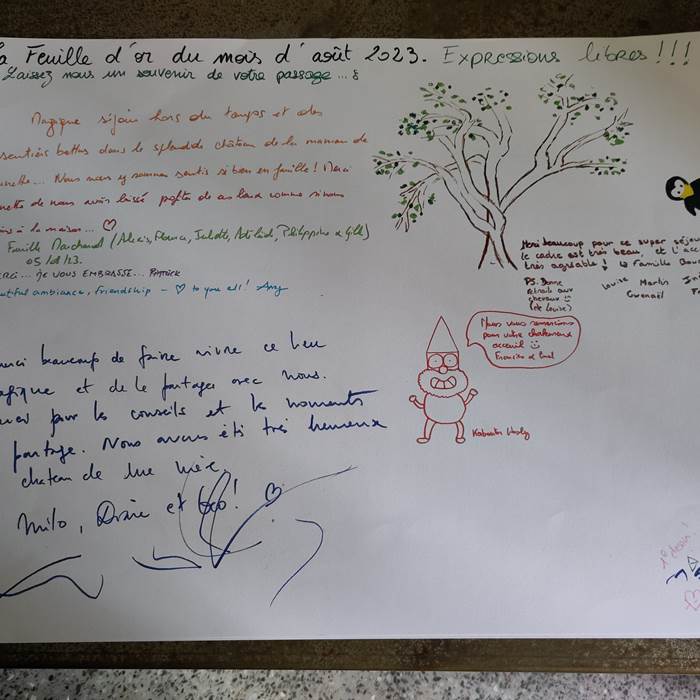 La Feuille d'or du mois d'août 2023. Expressions libres!!!
Laissez nous un souvenir de votre passage...
Magique séjour hors du temps et des
sentiers battus dans le splendide château de la maman de
... Nous nous y sommes sentis si bien en famille! Merci
de nous avoir laissé profiter de ces lieux comme si nous
à la maison... ♡
Famille Marchand (Alexis, Florence, Juliette, Adélaïde, Philippine & Gilles)
05/08/23.
MERCI... JE VOUS EMBRASSE... PATRICK
Beautiful ambiance, Friendship - ♡ to you all! Amy
Merci beaucoup pour ce super séjour
le cadre est très beau, et l'acc
très agréable! La Famille
PS: Bonne
retraite aux
chevaux
(de Louise)
Louise Martin
Gwenaël
Nous vous remercions
pour votre chaleureux
accueil
Francine &
Merci beaucoup de faire vivre ce lieu
magique et de le partager avec nous.
Merci pour les conseils et les moments
partage. Nous avons été très heureux
chateau de
Milo, et Léo! ♡
1er dessin!